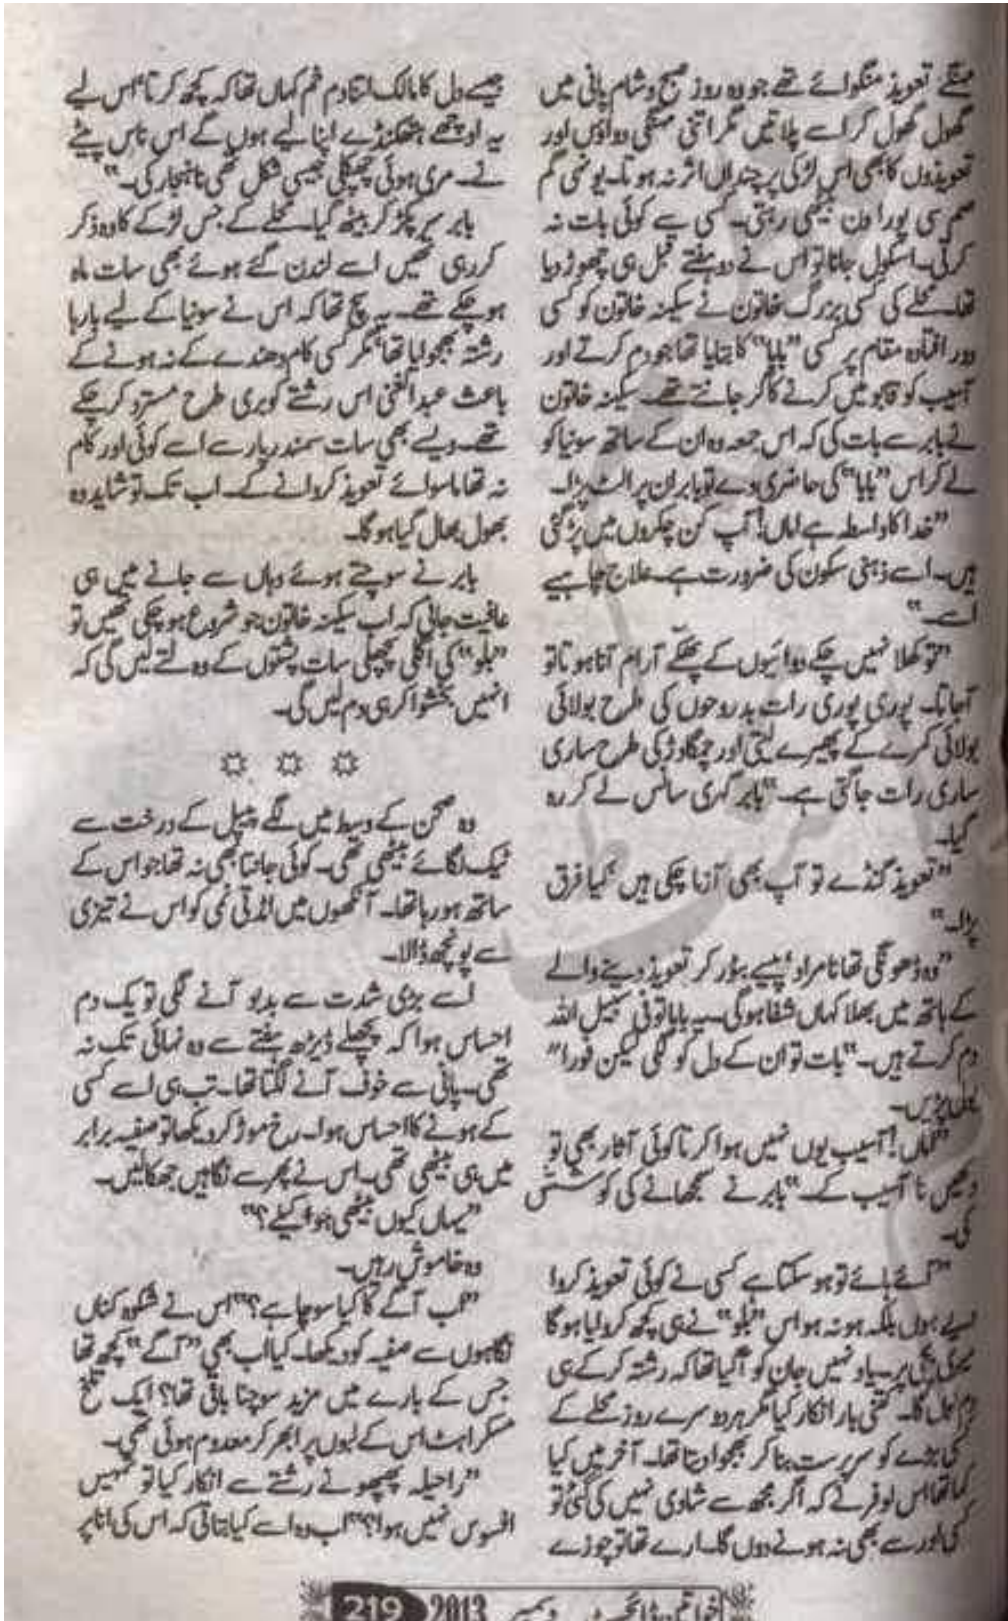 مہنگے تعویذ منگوائے تھے جو وہ روز صبح و شام پانی میں
گھول گھول کر اسے پلاتیں مگر اتنی مہنگی دواؤں اور
تعویذوں کا بھی اس لڑکی پر چنداں اثر نہ ہوتا۔ یونہی گم
صم سی پورا دن بیٹھی رہتی۔ کسی سے کوئی بات نہ
کرتی۔ اسکول جانا تو اس نے دو ہفتے قبل ہی چھوڑ دیا
تھا۔ محلے کی کسی بزرگ خاتون نے سکینہ خاتون کو کسی
دور افتادہ مقام پر کسی "بابا" کا بتایا تھا جو دم کرتے اور
آسیب کو قابو میں کرنے کا گر جانتے تھے۔ سکینہ خاتون
نے بابر سے بات کی کہ اس جمعہ وہ ان کے ساتھ سونیا کو
لے کر اس "بابا" کی حاضری دے تو بابر ان پر الٹ پڑا۔
"خدا کا واسطہ ہے اماں! آپ کن چکروں میں پڑ گئی
ہیں۔ اسے ذہنی سکون کی ضرورت ہے۔ علاج چاہیے
اسے۔"
"تو کھلا نہیں چکے دوائیوں کے پھکے آرام آنا ہوتا تو
آجاتا۔ پوری پوری رات بدروحوں کی طرح بولائی
بولائی کمرے کے پھیرے لیتی اور چمگادڑ کی طرح ساری
ساری رات جاگتی ہے۔" بابر گہری سانس لے کر رہ
گیا۔
"تعویذ گنڈے تو آپ بھی آزما چکی ہیں کیا فرق
پڑا۔"
"وہ ڈھونگی تھا نامراد، پیسے بٹور کر تعویذ دینے والے
کے ہاتھ میں بھلا کہاں شفا ہوگی۔ یہ بابا تو فی سبیل اللہ
دم کرتے ہیں۔" بات تو ان کے دل کو لگی لیکن فورا"
بول پڑیں۔
"اماں! آسیب یوں نہیں ہوا کرتا کوئی آثار بھی تو
دکھیں نا آسیب کے۔" بابر نے سمجھانے کی کوشش
کی۔
"اے ہائے تو ہو سکتا ہے کسی نے کوئی تعویذ کروا
دیے ہوں بلکہ ہو نہ ہو اس "بلو" نے ہی کچھ کروایا ہوگا
میری بچی پر۔ یاد نہیں جان کو آگیا تھا کہ رشتہ کر کے ہی
دم لوں گا۔ کتنی بار انکار کیا مگر ہر دوسرے روز محلے کے
کسی بڑے کو سرپرست بنا کر بھجوا دیتا تھا۔ آخر میں کیا
کہا تھا اس لوفر نے کہ اگر مجھ سے شادی نہیں کی گئی تو
کسی اور سے بھی نہ ہونے دوں گا۔ ارے تھا تو چوزے
جیسے دل کا مالک اتنا دم خم کہاں تھا کہ کچھ کرتا، اس لیے
یہ اوچھے ہتھکنڈے اپنا لیے ہوں گے اس ناس پیٹے
نے۔ مری ہوئی چھپکلی جیسی شکل تھی ناہنجار کی۔"
بابر سر پکڑ کر بیٹھ گیا۔ محلے کے جس لڑکے کا وہ ذکر
کر رہی تھیں اسے لندن گئے ہوئے بھی سات ماہ
ہو چکے تھے۔ یہ سچ تھا کہ اس نے سونیا کے لیے بارہا
رشتہ بھجوایا تھا مگر کسی کام دھندے کے نہ ہونے کے
باعث عبدالغنی اس رشتے کو بری طرح مسترد کر چکے
تھے۔ ویسے بھی سات سمندر پار سے اسے کوئی اور کام
نہ تھا ماسوائے تعویذ کروانے کے۔ اب تک تو شاید وہ
بھول بھال گیا ہوگا۔
بابر نے سوچتے ہوئے وہاں سے جانے میں ہی
عافیت جانی کہ اب سکینہ خاتون جو شروع ہو چکی تھیں تو
"بلو" کی اگلی پچھلی سات پشتوں کے وہ لتے لیں گی کہ
انہیں بخشوا کر ہی دم لیں گی۔
وہ صحن کے وسط میں لگے پیپل کے درخت سے
ٹیک لگائے بیٹھی تھی۔ کوئی جانتا بھی نہ تھا جو اس کے
ساتھ ہو رہا تھا۔ آنکھوں میں امڈتی نمی کو اس نے تیزی
سے پونچھ ڈالا۔
اسے بڑی شدت سے بدبو آنے لگی تو یک دم
احساس ہوا کہ پچھلے ڈیڑھ ہفتے سے وہ نہائی تک نہ
تھی۔ پانی سے خوف آنے لگتا تھا۔ تب ہی اسے کسی
کے ہونے کا احساس ہوا۔ رخ موڑ کر دیکھا تو صفیہ برابر
میں ہی بیٹھی تھی۔ اس نے پھر سے نگاہیں جھکالیں۔
"یہاں کیوں بیٹھی ہو اکیلے؟"
وہ خاموش رہیں۔
"اب آگے کا کیا سوچا ہے؟" اس نے شکوہ کناں
نگاہوں سے صفیہ کو دیکھا۔ کیا اب بھی "آگے" کچھ تھا
جس کے بارے میں مزید سوچنا باقی تھا؟ ایک تلخ
مسکراہٹ اس کے لبوں پر ابھر کر معدوم ہوئی تھی۔
"راحیلہ پھپھو نے رشتے سے انکار کیا تو تمہیں
افسوس نہیں ہوا؟" اب وہ اسے کیا بتاتی کہ اس کی انا پر
خواتین ڈائجسٹ دسمبر 2013 219